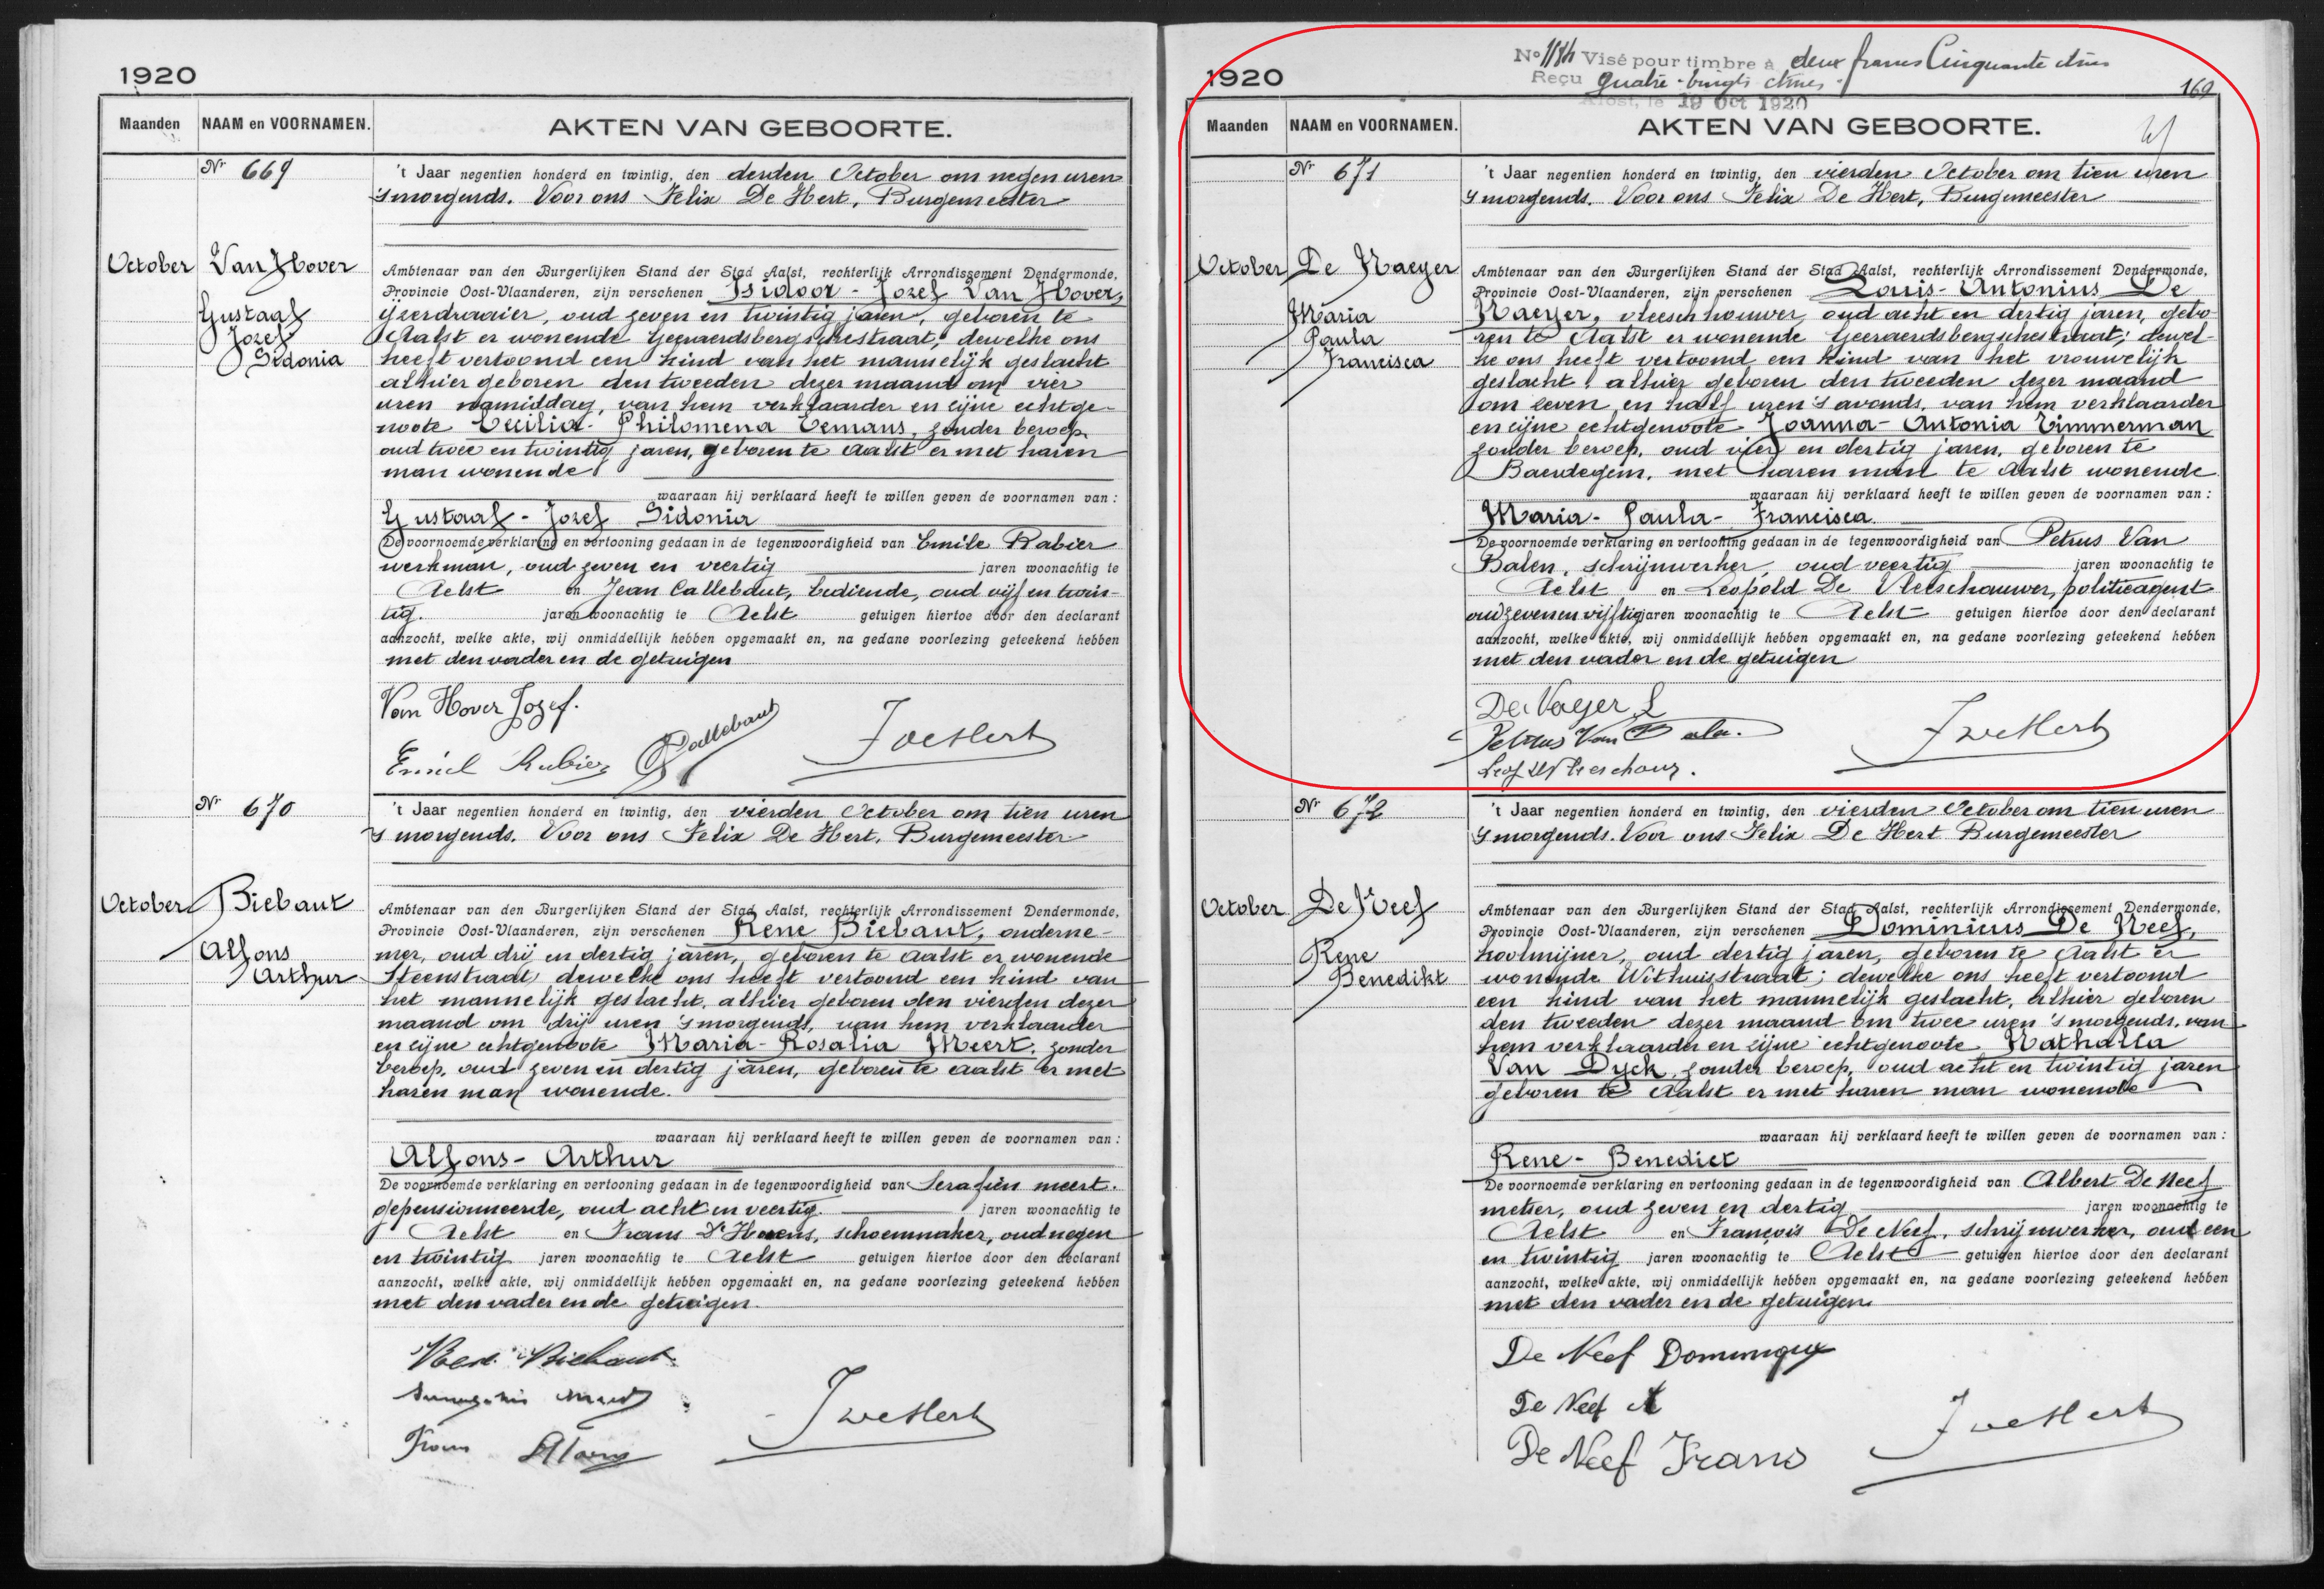 1920
Maanden NAAM en VOORNAMEN. AKTEN VAN GEBOORTE.
Nr 669
't Jaar negentien honderd en twintig, den derden October om negen uren
's morgends. Voor ons Felix De Hert, Burgemeester
October
Van Hover
Gustaaf
Jozef
Sidonia
Ambtenaar van den Burgerlijken Stand der Stad Aalst, rechterlijk Arrondissement Dendermonde,
Provincie Oost-Vlaanderen, zijn verschenen Isidoor - Jozef Van Hover,
ijzerdraaier, oud zeven en twintig jaren, geboren te
Aalst er wonende Geeraerdsbergschestraat; dewelke ons
heeft vertoond een kind van het mannelijk geslacht
alhier geboren den tweeden dezer maand om vier
uren namiddag, van hem verklaarder en zijne echtge-
noote Cecilia - Philomena Temans, zonder beroep,
oud twee en twintig jaren, geboren te Aalst er met haren
man wonende
waaraan hij verklaard heeft te willen geven de voornamen van :
Gustaaf - Jozef Sidonia
De voornoemde verklaring en vertooning gedaan in de tegenwoordigheid van Emile Rabier
werkman, oud zeven en veertig jaren woonachtig te
Aelst en Jean Callebaut, bediende, oud vijf en twin-
tig. jaren woonachtig te Aelst getuigen hiertoe door den declarant
aanzocht, welke akte, wij onmiddellijk hebben opgemaakt en, na gedane voorlezing geteekend hebben
met den vader en de getuigen
Van Hover Jozef.
Callebaut
Emiel Rubier
FDeHert
Nr 670
't Jaar negentien honderd en twintig, den vierden October om tien uren
's morgends. Voor ons Felix De Hert, Burgemeester
October
Biebaut
Alfons
Arthur
Ambtenaar van den Burgerlijken Stand der Stad Aalst, rechterlijk Arrondissement Dendermonde,
Provincie Oost-Vlaanderen, zijn verschenen Rene Biebaut, onderne-
mer, oud drij en dertig jaren, geboren te Aalst er wonende
Steenstraat, dewelke ons heeft vertoond een kind van
het mannelijk geslacht, alhier geboren den vierden dezer
maand om drij uren 's morgends, van hem verklaarder
en zijne echtgenoote Maria - Rosalia Meert, zonder
beroep, oud zeven en dertig jaren, geboren te Aalst er met
haren man wonende.
waaraan hij verklaard heeft te willen geven de voornamen van :
Alfons - Arthur
De voornoemde verklaring en vertooning gedaan in de tegenwoordigheid van Serafien Meert.
gepensionneerde, oud acht en veertig jaren woonachtig te
Aelst en Frans D'Hoens, schoenmaker, oud negen
en twintig jaren woonachtig te Aelst getuigen hiertoe door den declarant
aanzocht, welke akte, wij onmiddellijk hebben opgemaakt en, na gedane voorlezing geteekend hebben
met den vader en de getuigen.
Biebaut
Frans
FDeHert
No 1184 Visé pour timbre à deux francs Cinquante ctmes
Reçu quatre-vingts ctmes.
Alost, le 19 Oct 1920
1920
169
Maanden NAAM en VOORNAMEN. AKTEN VAN GEBOORTE.
Nr 671
't Jaar negentien honderd en twintig, den vierden October om tien uren
's morgends. Voor ons Felix De Hert, Burgemeester
October
De Naeyer
Maria
Paula
Francisca
Ambtenaar van den Burgerlijken Stand der Stad Aalst, rechterlijk Arrondissement Dendermonde,
Provincie Oost-Vlaanderen, zijn verschenen Louis - Antonius De
Naeyer, vleeschhouwer, oud acht en dertig jaren, gebo-
ren te Aalst er wonende Geeraerdsbergschestraat; dewel-
ke ons heeft vertoond een kind van het vrouwelijk
geslacht, alhier geboren den tweeden dezer maand
om zeven en half uren 's avonds, van hem verklaarder
en zijne echtgenoote Joanna - Antonia Timmerman
zonder beroep, oud vier en dertig jaren, geboren te
Baerdegem, met haren man te Aalst wonende
waaraan hij verklaard heeft te willen geven de voornamen van :
Maria - Paula - Francisca
De voornoemde verklaring en vertooning gedaan in de tegenwoordigheid van Petrus Van
Balen, schrijnwerker, oud veertig jaren woonachtig te
Aelst en Leopold De Vleeschauwer, politieagent
oud zeven en vijftig jaren woonachtig te Aelst getuigen hiertoe door den declarant
aanzocht, welke akte, wij onmiddellijk hebben opgemaakt en, na gedane voorlezing geteekend hebben
met den vader en de getuigen
De Nayer L
Petrus Van Bala.
FDeHert
Nr 672
't Jaar negentien honderd en twintig, den vierden October om tien uren
's morgends. Voor ons Felix De Hert Burgemeester
October
De Neef
Rene
Benedikt
Ambtenaar van den Burgerlijken Stand der Stad Aalst, rechterlijk Arrondissement Dendermonde,
Provincie Oost-Vlaanderen, zijn verschenen Dominicus De Neef,
koolmijner, oud dertig jaren, geboren te Aalst er
wonende Withuisstraat; dewelke ons heeft vertoond
een kind van het mannelijk geslacht, alhier geboren
den tweeden dezer maand om twee uren 's morgends, van
hem verklaarder en zijne echtgenoote Nathalia
Van Dyck, zonder beroep, oud acht en twintig jaren
geboren te Aalst er met haren man wonende
waaraan hij verklaard heeft te willen geven de voornamen van :
Rene - Benedict
De voornoemde verklaring en vertooning gedaan in de tegenwoordigheid van Albert De Neef
metser, oud zeven en dertig jaren woonachtig te
Aelst en François De Neef, schrijnwerker, oud een
en twintig jaren woonachtig te Aelst getuigen hiertoe door den declarant
aanzocht, welke akte, wij onmiddellijk hebben opgemaakt en, na gedane voorlezing geteekend hebben
met den vader en de getuigen
De Neef Dominique
De Neef A
De Neef Frans
FDeHert